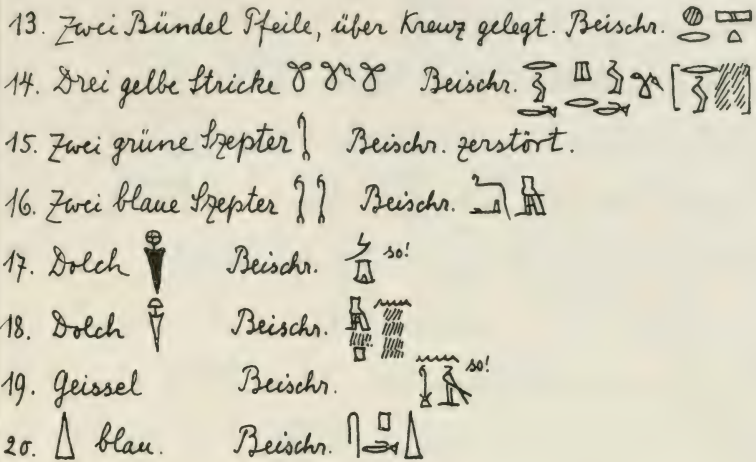 13. Zwei Bündel Pfeile, über Kreuz gelegt. Beischr.
14. Drei gelbe Stricke Beischr.
15. Zwei grüne Szepter Beischr. zerstört.
16. Zwei blaue Szepter Beischr.
17. Dolch Beischr. so!
18. Dolch Beischr.
19. Geissel Beischr. so!
20. blau. Beischr.